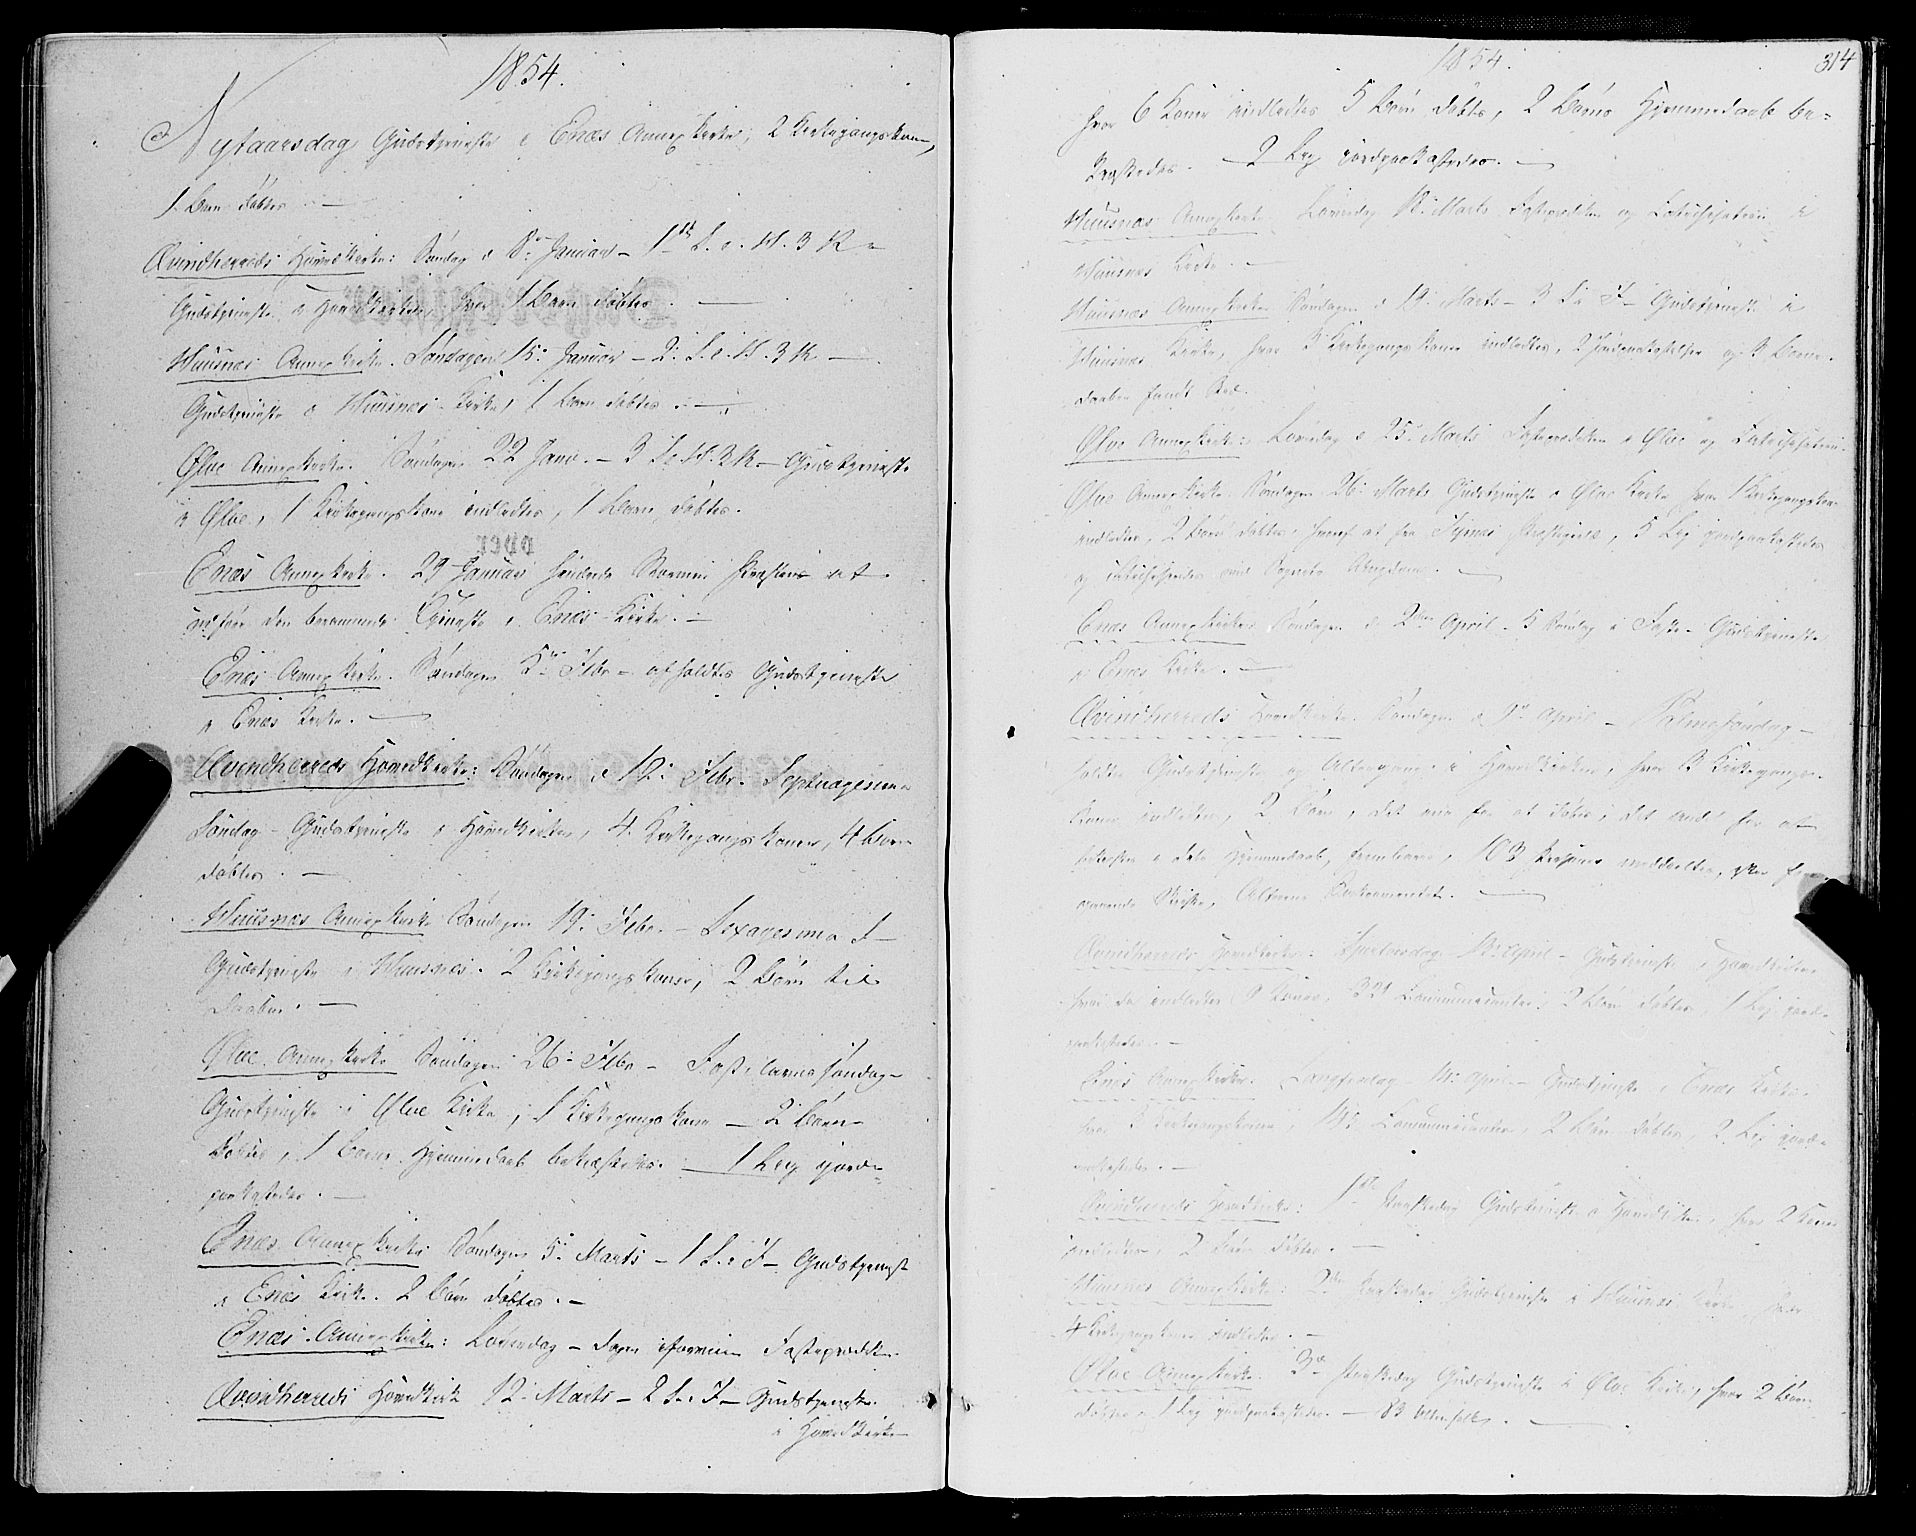 1854.
Nytaarsdag Gudstjeneste i Enæs Annexkirke, 2 Kirkegangskoner,
1 Barn døbtes. —
Qvindherreds Hovedkirke: Søndag d 8de Januar – 1ste S. e. H. 3 K –
Gudstjeneste i Hovedkirken, hvor 1 Barn døbtes. —
Huusnæs Annexkirke. Søndagen 15de Januar – 2. S. e. H. 3 K —
Gudstjeneste i Huusnæs Kirke, 1 Barn døbtes. —
Ølve Annexkirke. Søndagen 22 Janr. – 3 S. e. H. 3 K. – Gudstjeneste
i Ølve, 1 Kirkegangskone indledtes, 1 Barn døbtes.
Enæs Annexkirke. 29 Januar hindrede Stormen Præsten at
udføre den berammede Tjeneste i Enæs Kirke. —
Enæs Annexkirke. Søndagen 5te Febr – afholdtes Gudstjeneste
i Enæs Kirke. —
Qvindherreds Hovedkirke: Søndagen d 12. Febr. Septuagesima
Søndag – Gudstjeneste i Hovedkirken, 4 Kirkegangskoner, 4 Børn
døbtes. —
Huusnæs Annexkirke Søndagen 19. Febr. – Sexagesima S –
Gudstjeneste i Huusnæs. 2 Kirkegangskoner, 2 Børn til
Daaben. —
Ølve Annexkirke Søndagen 26. Febr – Fastelavns Søndag –
Gudstjeneste i Ølve Kirke, 1 Kirkegangskone — 2 Børn
døbtes, 1 Barns Hjemmedaab bekræftedes. — 1 Liig jord-
paakastedes. —
Enæs Annexkirke Søndagen 5. Marts – 1 S. i F – Gudstjeneste
i Enæs Kirke. 2 Børn døbtes. —
Enæs Annexkirke: Løverdag – Dagen iforveien Fasteprædiken.
Qvindherreds Hovedkirke 12. Marts – 2 S. i F – Gudstjeneste
i Hovedkirken
1854.
314
hvor 6 Koner indledtes 5 Børn døbtes, 2 Børns Hjemmedaab be-
kræftedes. — 2 Liig jordpaakastedes. —
Huusnæs Annexkirke. Løverdag 18. Marts Fasteprædiken og Catechisation i
Huusnæs Kirke. —
Huusnæs Annexkirke Søndagen d 19. Marts – 3 S. i F – Gudstjeneste i
Huusnæs Kirke, hvor 3 Kirkegangskoner indledtes, 2 Jordpaakastelser og 3 Børne-
daaben fandt Sted.
Ølve Annexkirke: Løverdag d 25. Marts Fasteprædiken i Ølve og Catechisation.
Ølve Annexkirke Søndagen 26. Marts Gudstjeneste i Ølve Kirke hvor 1 Kirkegangskone
indledtes, 2 Børn døbtes, hvoraf et fra Tysnæs Præstegjeld, 5 Liig jordpaakastedes
og catechiseredes med Sognets Ungdom. —
Enæs Annexkirke Søndagen d 2den April 5 Søndag i Faste – Gudstjeneste
i Enæs Kirke. —
Qvindherreds Hovedkirke Søndagen d 9. April – Palmesøndag –
holdtes Gudstjeneste og Altergang i Hovedkirken, hvor 3 Kirkegangs-
koner indledtes, 2 Børn, det ene for at døbes, det andet for at
bekræftes i dets Hjemmedaab, frembares, 103 Personer meddeltes, efter fore-
gaaende Skrifte, Alterens Sakramentet. —
Qvindherreds Hovedkirke: Skjærtorsdag 13. April – Gudstjeneste i Hovedkirken
hvor da indledtes Koner, Communicanter, 2 Børn døbtes, 1 Liig jord-
paakastedes. —
Enæs Annexkirke: Langfredag 14. April – Gudstjeneste i Enæs Kirke
hvor 3 Kirkegangskoner, Communicanter, 2 Børn døbtes, 2 Liig jord-
paakastedes. —
Qvindherreds Hovedkirke: 1ste Paaskedag Gudstjeneste i Hovedkirken, hvor 2 Koner
indledtes, 2 Børn døbtes. —
Huusnæs Annexkirke: 2den Paaskedag Gudstjeneste i Huusnæs Kirke hvor
4 Kirkegangskoner indledtes. —
Ølve Annexkirke. 3die Paaskedag Gudstjeneste i Ølve Kirke, hvor 2 Børn
døbtes, 1 Liig jordpaakastedes. — 83 Alterfolk. —